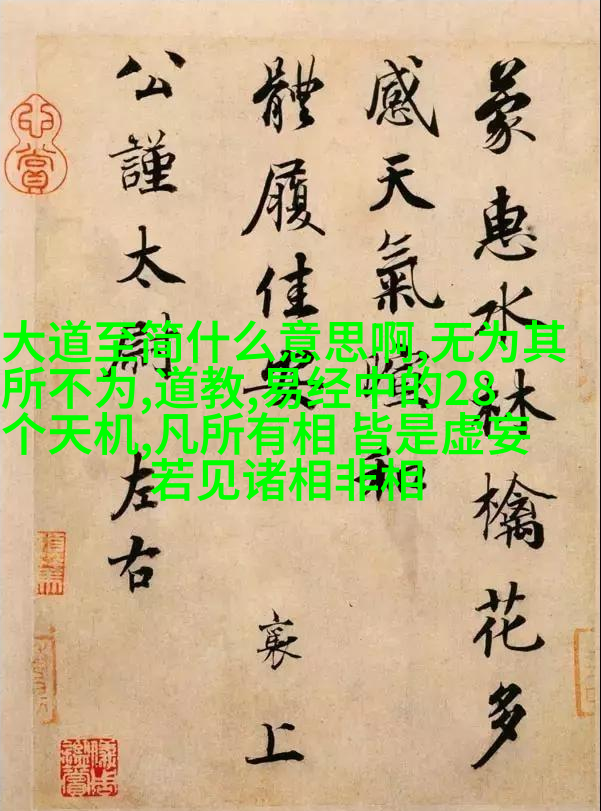 大道至简什么意思啊,无为其
所不为,道教,易经中的28
个天机,凡所有相 皆是虚妄
若见诸相非相
蒙惠水林檎花多
感天氣暄和
體履佳安 襄上
公謹太尉左右